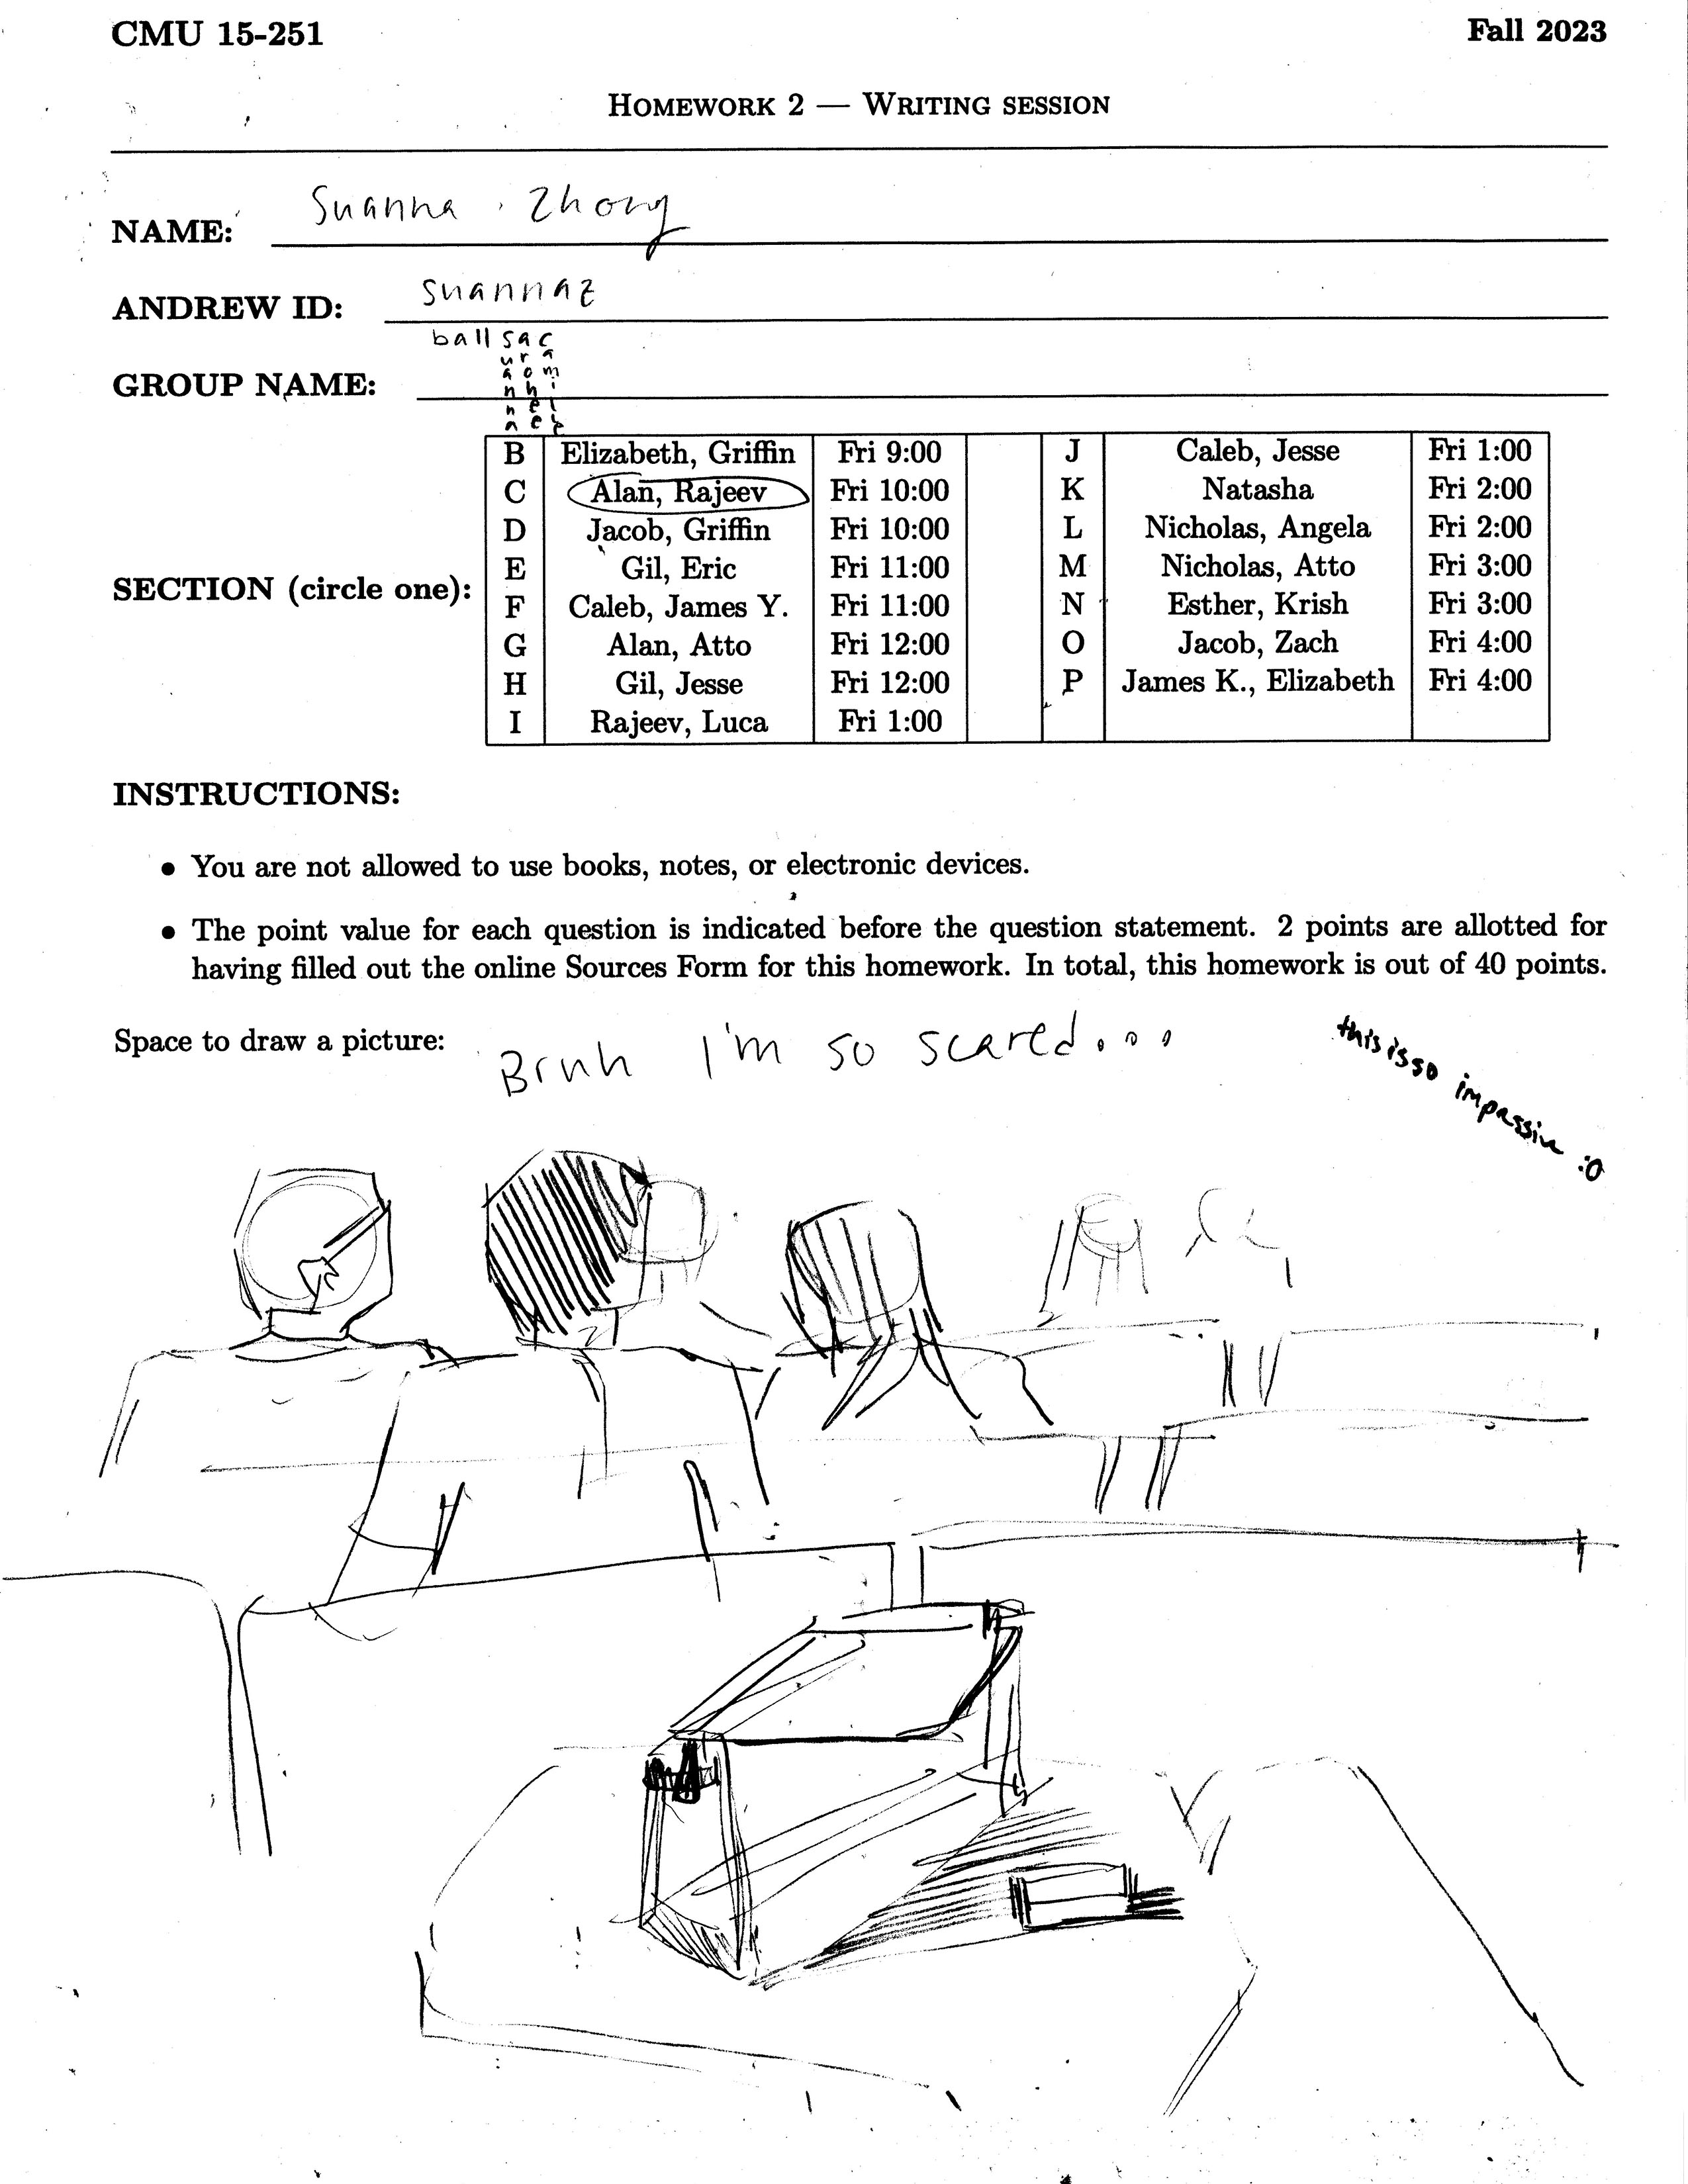 CMU 15-251 Fall 2023
HOMEWORK 2 — WRITING SESSION
NAME: Suanna Zhong
ANDREW ID: suannaz
GROUP NAME: ballsac
suanna
arohee
camille
SECTION (circle one):
B Elizabeth, Griffin Fri 9:00 J Caleb, Jesse Fri 1:00
C Alan, Rajeev Fri 10:00 K Natasha Fri 2:00
D Jacob, Griffin Fri 10:00 L Nicholas, Angela Fri 2:00
E Gil, Eric Fri 11:00 M Nicholas, Atto Fri 3:00
F Caleb, James Y. Fri 11:00 N Esther, Krish Fri 3:00
G Alan, Atto Fri 12:00 O Jacob, Zach Fri 4:00
H Gil, Jesse Fri 12:00 P James K., Elizabeth Fri 4:00
I Rajeev, Luca Fri 1:00
INSTRUCTIONS:
• You are not allowed to use books, notes, or electronic devices.
• The point value for each question is indicated before the question statement. 2 points are allotted for
having filled out the online Sources Form for this homework. In total, this homework is out of 40 points.
Space to draw a picture: Bruh I'm so scared...
this is so impassive :O